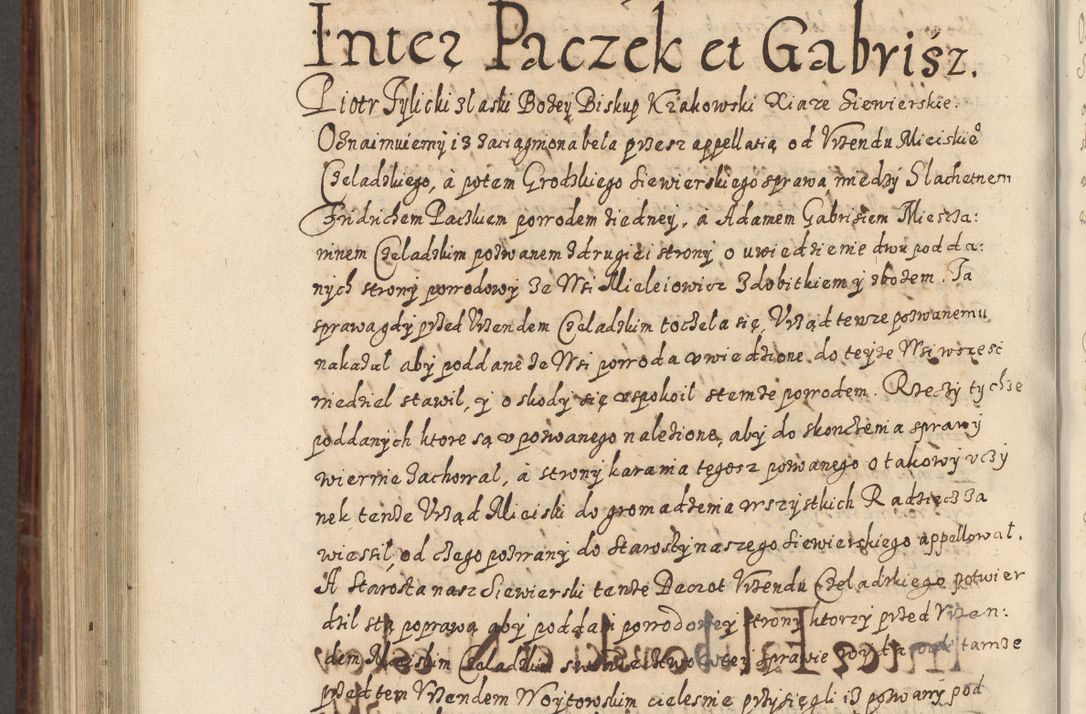 Inter Paczek et Gabrisz.
Piotr Tylicki z łaski Bożey Biskup Krakowski Xiaze Siewierskie.
Oznaimuiemy iz zaciągniona bela przesz appellatią od Vrzendu Mieiskieo
Czeladzkiego, à potem Grodzkiego Siewierskiego sprawa miedzy Slachetnem
Fridrichem Paczkiem powodem ziedney, a Adamem Gabrisiem Miescza:
ninem Czeladzkim pozwanem z drugiei strony o uwiedzienie dwu podda:
nych strony powodowy ze Wsi Mieleiowicz z dobitkiem y zbożem. Ta
sprawa gdy przed Vrzendem Czeladzkim toczela się, Vrząd tensze pozwanemu
nakazał aby poddane ze Wsi powoda uwiedzione do teyże Wsi wszesc
niedziel stawil, y o skody się uspokoil stemże powodem. Rzeczy tychze
poddanych ktore są v pozwanego nalezione, aby do skonczenia sprawy
wiernie zachował, à strony karania tegosz pozwanego o takowy vczy
nek tenze Vrząd Mieiski do gromadzenia wszystkich Radziec zza
wiesil, od czego pozwany do Starosty naszego Siewierskiego appellował.
A Starosta nasz Siewierski tenze Decret Vrzendu Czeladzkiego potwier
dzil stą poprawą aby poddani powodowey strony ktorzy przed Vrzen:
dem Mieiskim Czeladzkim swiadectwo wtey sprawie tamze
przed tem Vrzendem Woytowskim cielesnie przysięgli iz pozwany pod